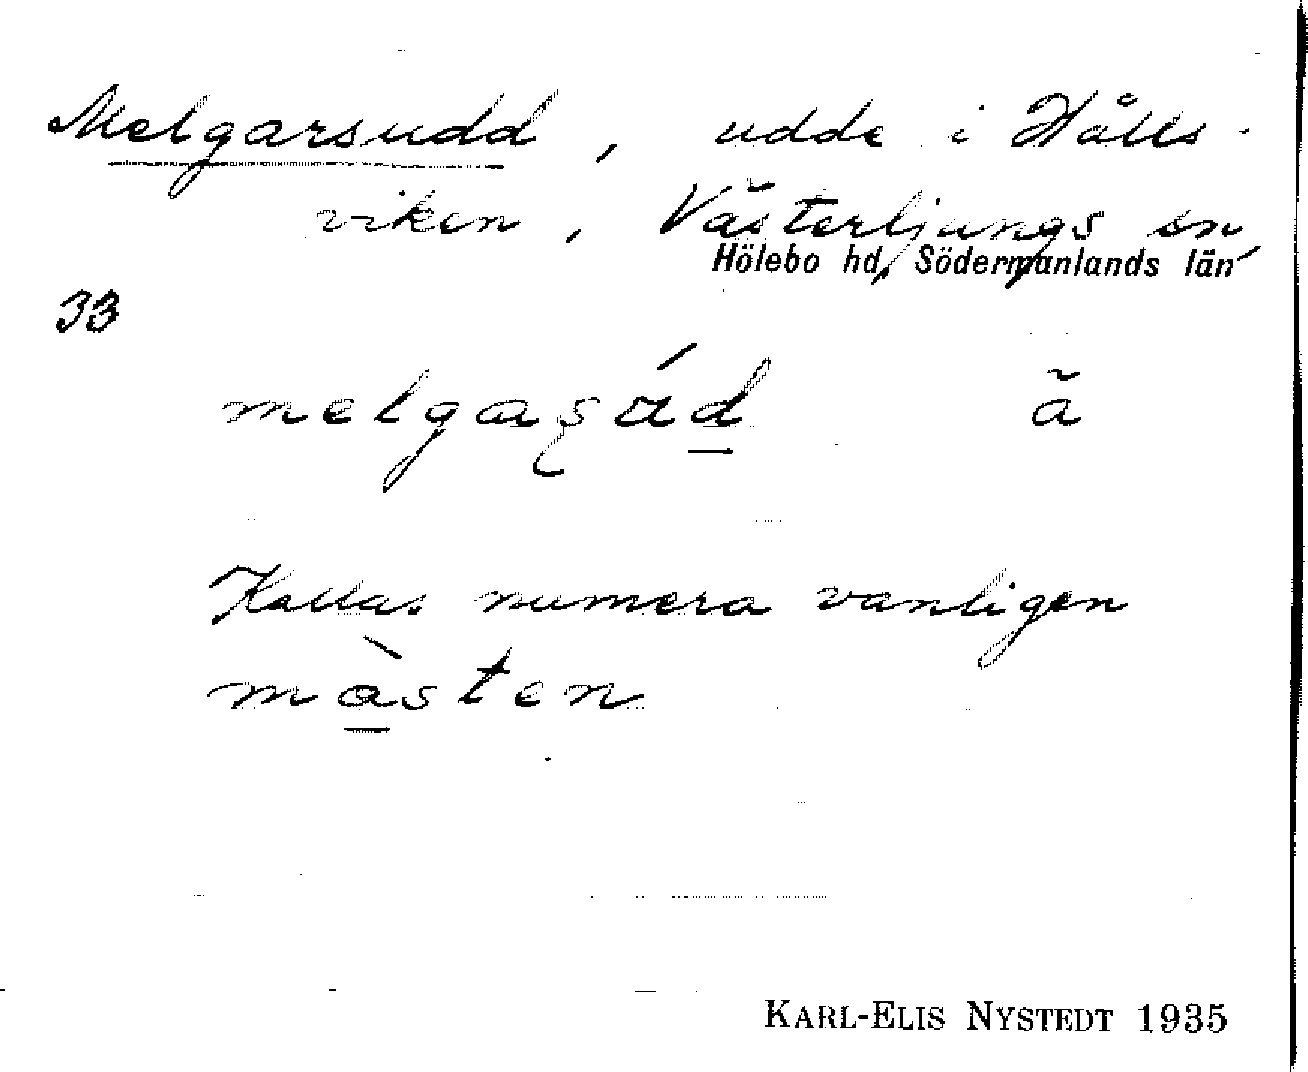 Melgarsudd, udde i Hålls-
viken, Västerljungs sn,
Hölebo hd, Södermanlands län
33
melgaşád ă
Kallas numera vanligen
màsten
KARL-ELIS NYSTEDT 1935